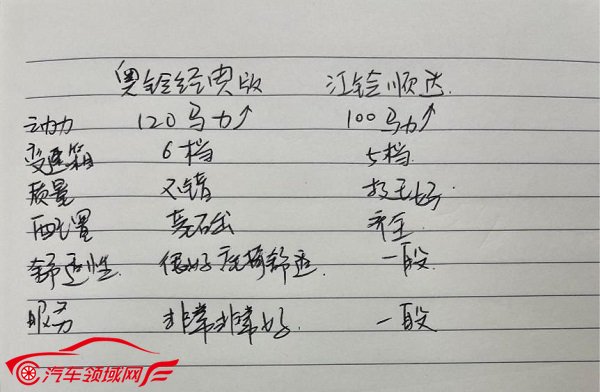 奥铃经典版 江铃顺达
动力 120马力↑ 100马力↑
变速箱 6档 5档
质量 不错 挺好
配置 基础 齐全
舒适性 很好 舒适 一般
服务 非常非常好 一般
汽车领域网